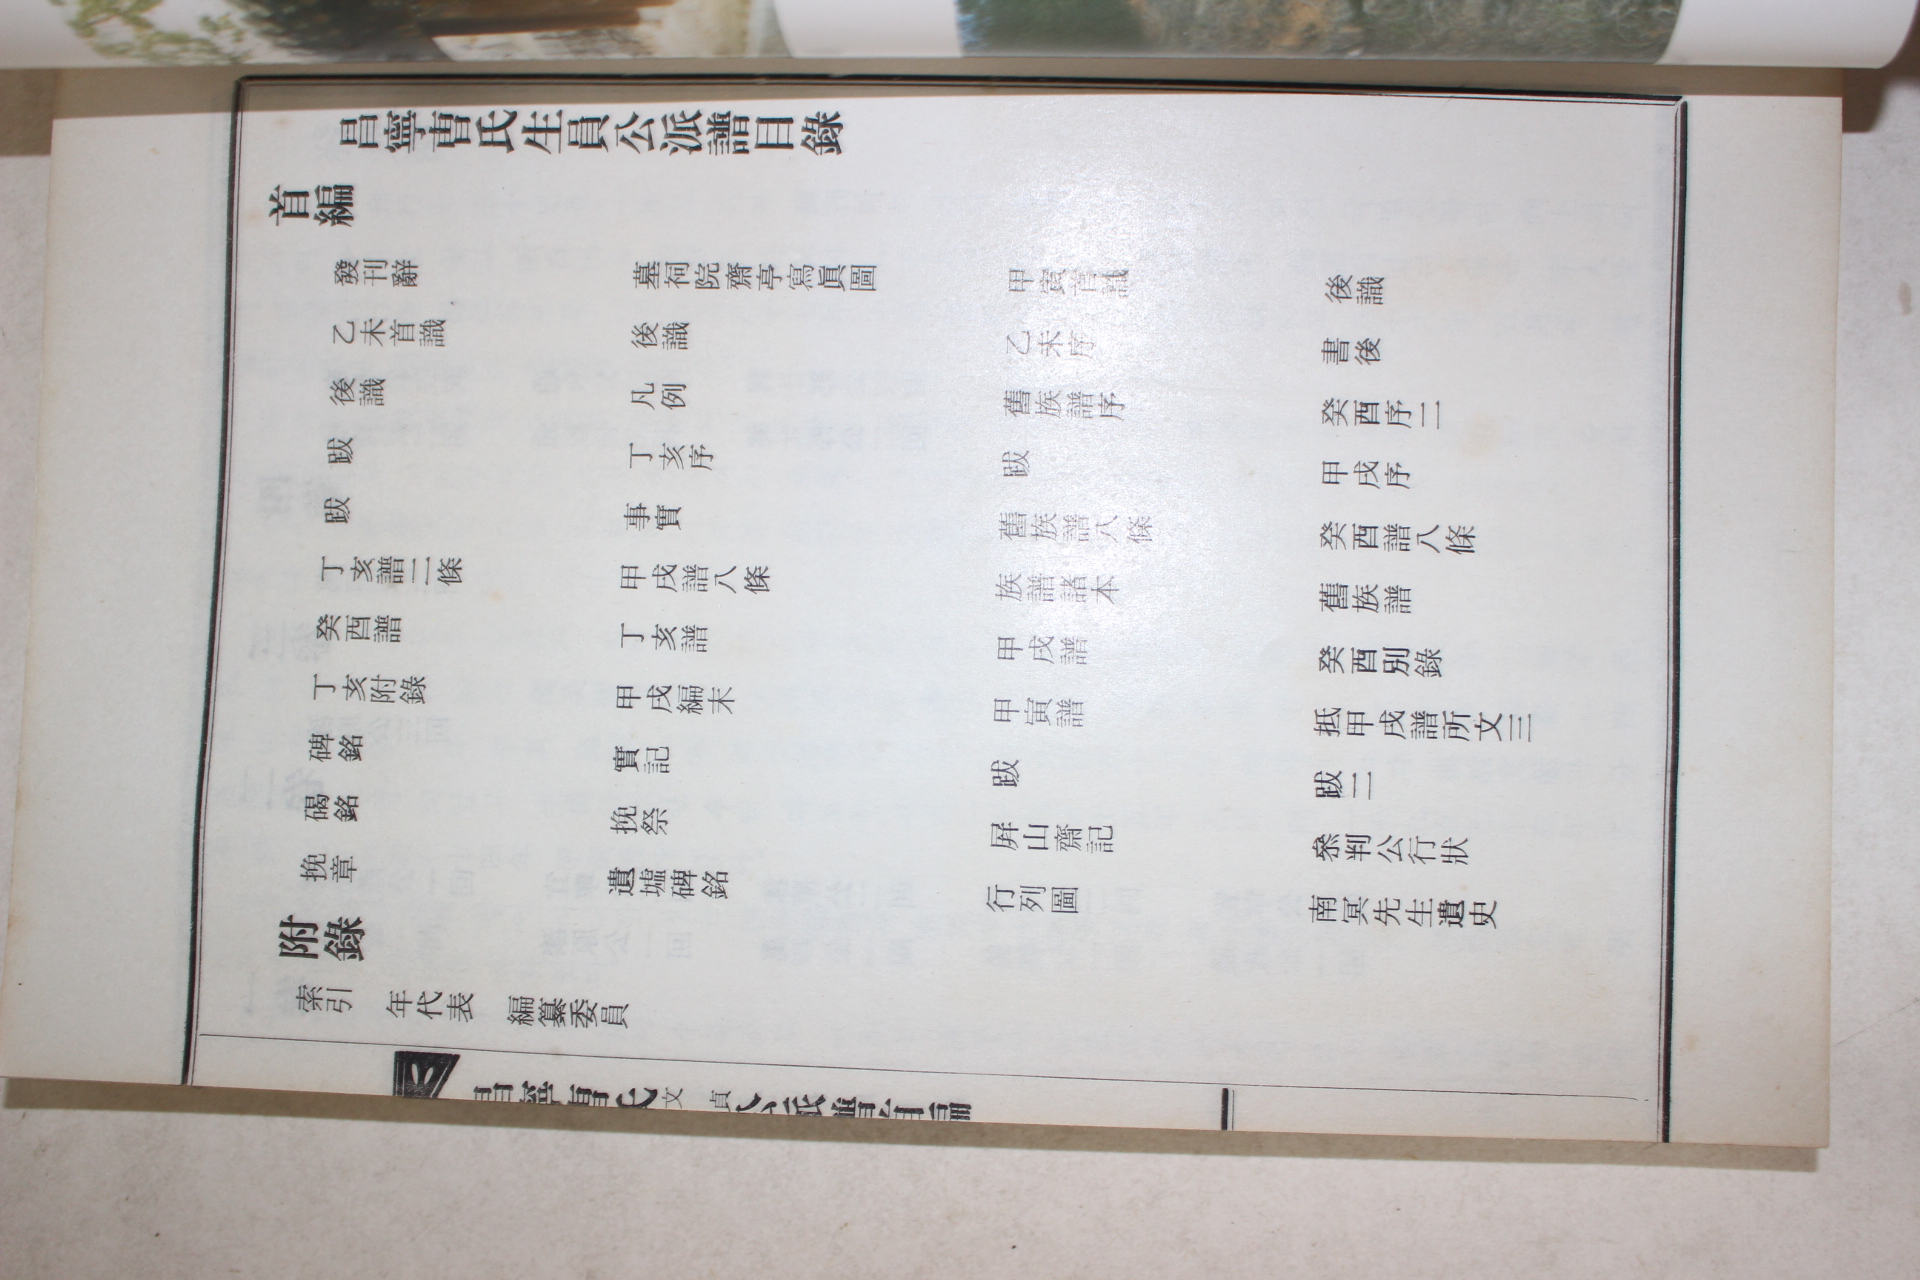 昌寧曺氏生員公派譜目錄
首編
發刊辭 墓祠院齋亭寫眞圖 甲寅首識 後識
乙未首識 後識 乙未序 書後
後識 凡例 舊族譜序 癸酉序二
跋 丁亥序 跋 甲戌序
跋 事實 舊族譜八條 癸酉譜八條
丁亥譜二條 甲戌譜八條 族譜諸本 舊族譜
癸酉譜 丁亥譜 甲戌譜 癸酉別錄
丁亥附錄 甲戌編末 甲寅譜 抵甲戌譜所文三
碑銘 實記 跋 跋二
碣銘 挽祭 屛山齋記 叅判公行狀
挽章 遺墟碑銘 行列圖 南冥先生遺史
附錄
索引 年代表 編纂委員
昌寧曺氏文貞公派譜首編
一